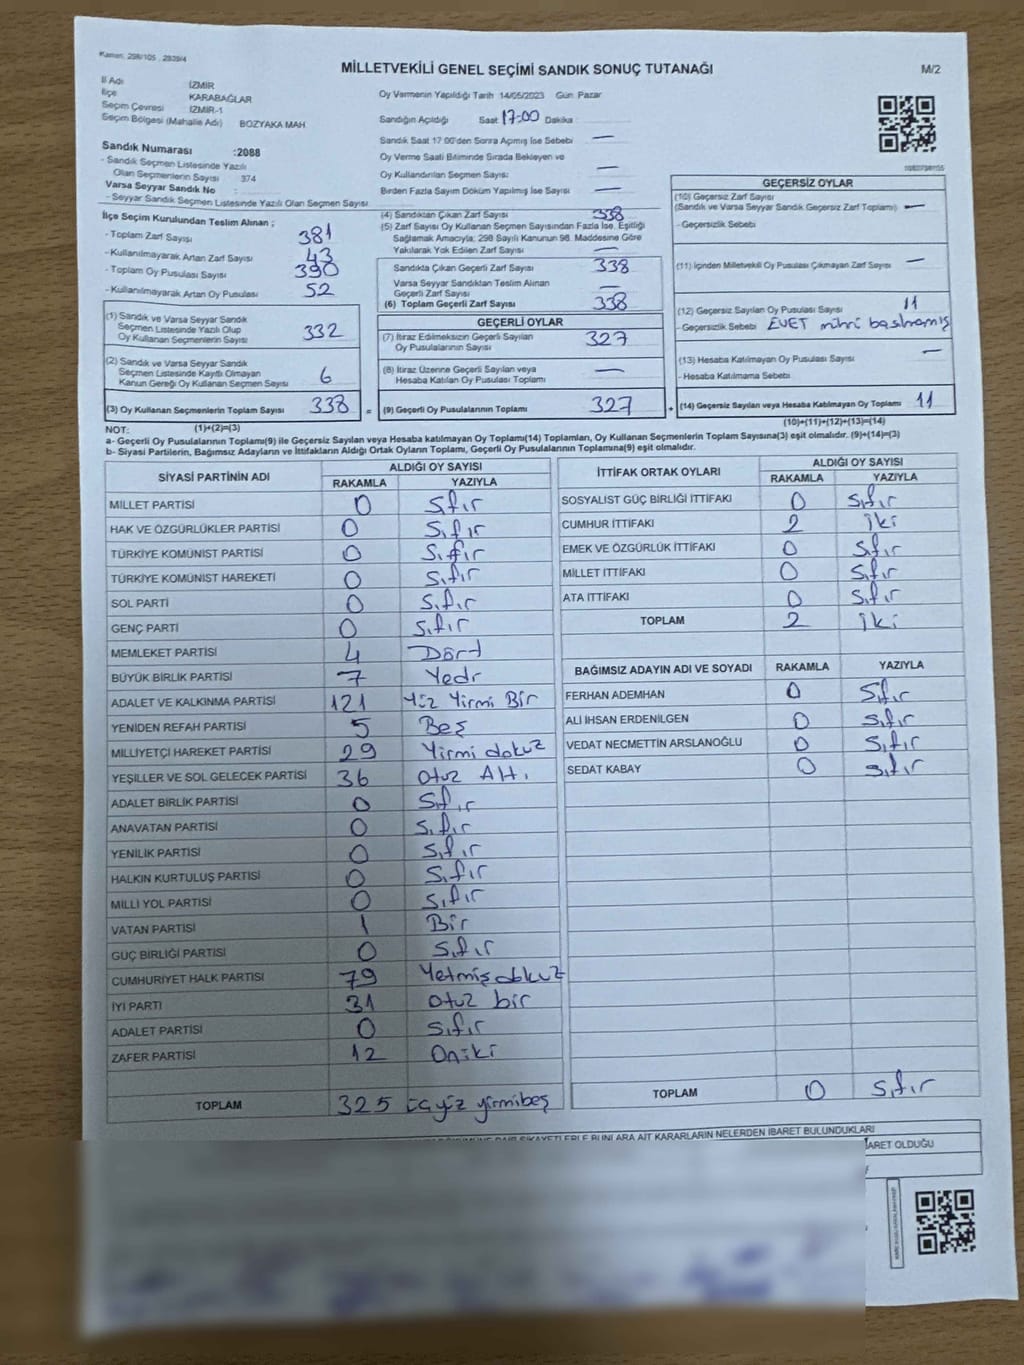 Kanun: 298/105 , 2839/4
MİLLETVEKİLİ GENEL SEÇİMİ SANDIK SONUÇ TUTANAĞI
M/2
İl Adı İZMİR
İlçe KARABAĞLAR
Seçim Çevresi İZMİR-1
Seçim Bölgesi (Mahalle Adı) BOZYAKA MAH.
Oy Vermenin Yapıldığı Tarih 14/05/2023 Gün Pazar
Sandığın Açıldığı Saat 17:00 Dakika :
Sandık Saat 17:00'den Sonra Açılmış İse Sebebi —
Oy Verme Saati Bitiminde Sırada Bekleyen ve
Oy Kullandırılan Seçmen Sayısı: —
Birden Fazla Sayım Döküm Yapılmış İse Sayısı —
Sandık Numarası :2088
- Sandık Seçmen Listesinde Yazılı
Olan Seçmenlerin Sayısı 374
Varsa Seyyar Sandık No :
- Seyyar Sandık Seçmen Listesinde Yazılı Olan Seçmen Sayısı
İlçe Seçim Kurulundan Teslim Alınan ;
- Toplam Zarf Sayısı 381
- Kullanılmayarak Artan Zarf Sayısı 43
- Toplam Oy Pusulası Sayısı 390
- Kullanılmayarak Artan Oy Pusulası 52
(1) Sandık ve Varsa Seyyar Sandık
Seçmen Listesinde Yazılı Olup
Oy Kullanan Seçmenlerin Sayısı 332
(2) Sandık ve Varsa Seyyar Sandık
Seçmen Listesinde Kayıtlı Olmayan
Kanun Gereği Oy Kullanan Seçmen Sayısı 6
(3) Oy Kullanan Seçmenlerin Toplam Sayısı 338 =
(4) Sandıktan Çıkan Zarf Sayısı 338
(5) Zarf Sayısı Oy Kullanan Seçmen Sayısından Fazla İse, Eşitliği
Sağlamak Amacıyla; 298 Sayılı Kanunun 98. Maddesine Göre
Yakılarak Yok Edilen Zarf Sayısı —
Sandıkta Çıkan Geçerli Zarf Sayısı 338
Varsa Seyyar Sandıktan Teslim Alınan
Geçerli Zarf Sayısı —
(6) Toplam Geçerli Zarf Sayısı 338
GEÇERLİ OYLAR
(7) İtiraz Edilmeksizin Geçerli Sayılan
Oy Pusulalarının Sayısı 327
(8) İtiraz Üzerine Geçerli Sayılan veya
Hesaba Katılan Oy Pusulası Toplamı —
(9) Geçerli Oy Pusulalarının Toplamı 327 +
GEÇERSİZ OYLAR
(10) Geçersiz Zarf Sayısı
(Sandık ve Varsa Seyyar Sandık Geçersiz Zarf Toplamı) —
- Geçersizlik Sebebi
(11) İçinden Milletvekili Oy Pusulası Çıkmayan Zarf Sayısı —
(12) Geçersiz Sayılan Oy Pusulası Sayısı 11
- Geçersizlik Sebebi EVET mührü basılmamış
(13) Hesaba Katılmayan Oy Pusulası Sayısı —
- Hesaba Katılmama Sebebi
(14) Geçersiz Sayılan veya Hesaba Katılmayan Oy Toplamı 11
NOT: (1)+(2)=(3) (10)+(11)+(12)+(13)=(14)
a- Geçerli Oy Pusulalarının Toplamı(9) ile Geçersiz Sayılan veya Hesaba katılmayan Oy Toplamı(14) Toplamları, Oy Kullanan Seçmenlerin Toplam Sayısına(3) eşit olmalıdır. (9)+(14)=(3)
b- Siyasi Partilerin, Bağımsız Adayların ve İttifakların Aldığı Ortak Oyların Toplamı, Geçerli Oy Pusulalarının Toplamına(9) eşit olmalıdır.
SİYASİ PARTİNİN ADI ALDIĞI OY SAYISI
RAKAMLA YAZIYLA
MİLLET PARTİSİ 0 Sıfır
HAK VE ÖZGÜRLÜKLER PARTİSİ 0 Sıfır
TÜRKİYE KOMÜNİST PARTİSİ 0 Sıfır
TÜRKİYE KOMÜNİST HAREKETİ 0 Sıfır
SOL PARTİ 0 Sıfır
GENÇ PARTİ 0 Sıfır
MEMLEKET PARTİSİ 4 Dört
BÜYÜK BİRLİK PARTİSİ 7 Yedi
ADALET VE KALKINMA PARTİSİ 121 Yüz Yirmi Bir
YENİDEN REFAH PARTİSİ 5 Beş
MİLLİYETÇİ HAREKET PARTİSİ 29 Yirmi dokuz
YEŞİLLER VE SOL GELECEK PARTİSİ 36 Otuz Altı
ADALET BİRLİK PARTİSİ 0 Sıfır
ANAVATAN PARTİSİ 0 Sıfır
YENİLİK PARTİSİ 0 Sıfır
HALKIN KURTULUŞ PARTİSİ 0 Sıfır
MİLLİ YOL PARTİSİ 0 Sıfır
VATAN PARTİSİ 1 Bir
GÜÇ BİRLİĞİ PARTİSİ 0 Sıfır
CUMHURİYET HALK PARTİSİ 79 Yetmiş dokuz
İYİ PARTİ 31 Otuz bir
ADALET PARTİSİ 0 Sıfır
ZAFER PARTİSİ 12 Oniki
TOPLAM 325 üçyüz yirmibeş
İTTİFAK ORTAK OYLARI ALDIĞI OY SAYISI
RAKAMLA YAZIYLA
SOSYALİST GÜÇ BİRLİĞİ İTTİFAKI 0 Sıfır
CUMHUR İTTİFAKI 2 iki
EMEK VE ÖZGÜRLÜK İTTİFAKI 0 Sıfır
MİLLET İTTİFAKI 0 Sıfır
ATA İTTİFAKI 0 Sıfır
TOPLAM 2 iki
BAĞIMSIZ ADAYIN ADI VE SOYADI RAKAMLA YAZIYLA
FERHAN ADEMHAN 0 Sıfır
ALİ İHSAN ERDENİLGEN 0 Sıfır
VEDAT NECMETTİN ARSLANOĞLU 0 Sıfır
SEDAT KABAY 0 Sıfır
TOPLAM 0 Sıfır
ŞİKAYETLERLE BUNLARA AİT KARARLARIN NELERDEN İBARET BULUNDUKLARI
OLDUĞU